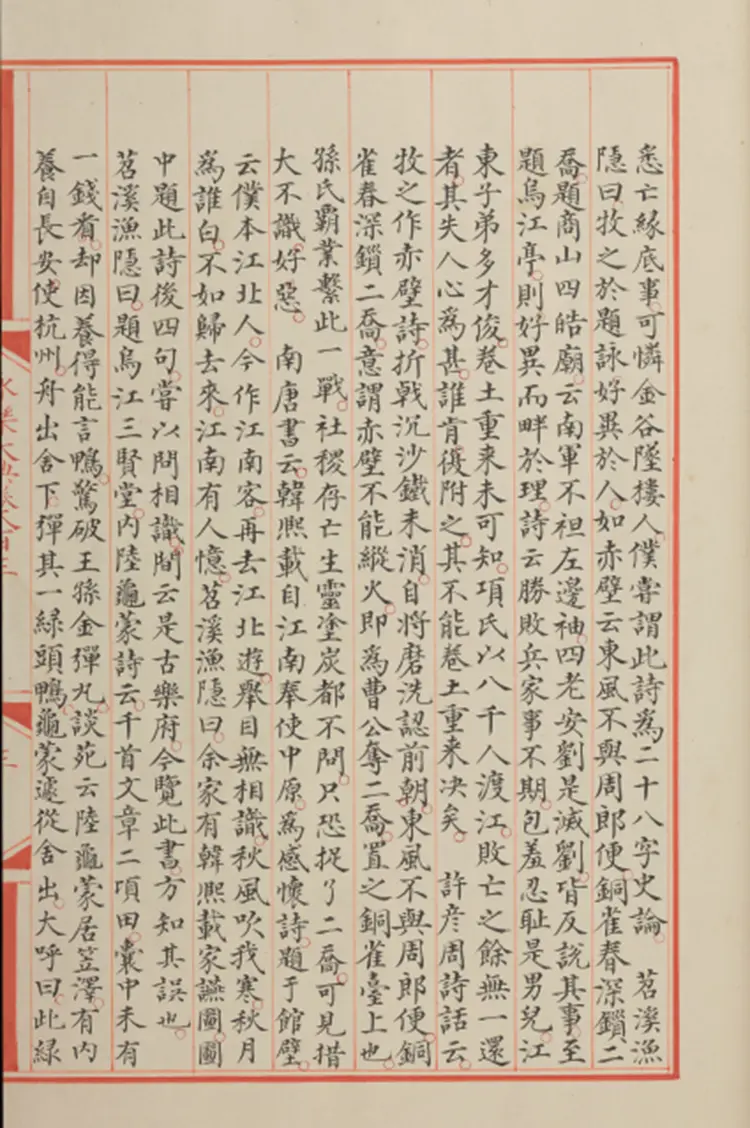 悉亡緣底事可憐金谷墜樓人僕嘗謂此詩爲二十八字史論　苕溪漁
隱曰牧之於題詠好異於人如赤壁云東風不與周郎便銅雀春深鎖二
喬題商山四皓廟云南軍不袒左邊袖四老安劉是滅劉皆反說其事至
題烏江亭則好異而畔於理詩云勝敗兵家事不期包羞忍恥是男兒江
東子弟多才俊卷土重来未可知項氏以八千人渡江敗亡之餘無一還
者其失人心爲甚誰肯復附之其不能卷土重来决矣　許彦周詩話云
牧之作赤壁詩折戟沉沙鐵未消自將磨洗認前朝東風不與周郎便銅
雀春深鎖二喬意謂赤壁不能縱火即爲曹公奪二喬置之銅雀臺上也
孫氏霸業繫此一戰社稷存亡生靈塗炭都不問只恐捉了二喬可見措
大不識好惡　南唐書云韓熙載自江南奉使中原爲感懷詩題于館壁
云僕本江北人今作江南客再去江北遊舉目無相識秋風吹我寒秋月
爲誰白不如歸去來江南有人憶苕溪漁隱曰余家有韓熙載家讌圖圖
中題此詩後四句嘗以問相識間云是古樂府今覽此書方知其誤也
苕溪漁隱曰題烏江三賢堂内陸龜蒙詩云千首文章二項田囊中未有
一錢看却因養得能言鴨驚破王孫金彈丸談苑云陸龜蒙居笠澤有内
養自長安使杭州舟出舍下彈其一緑頭鴨龜蒙遽從舍出大呼曰此緑